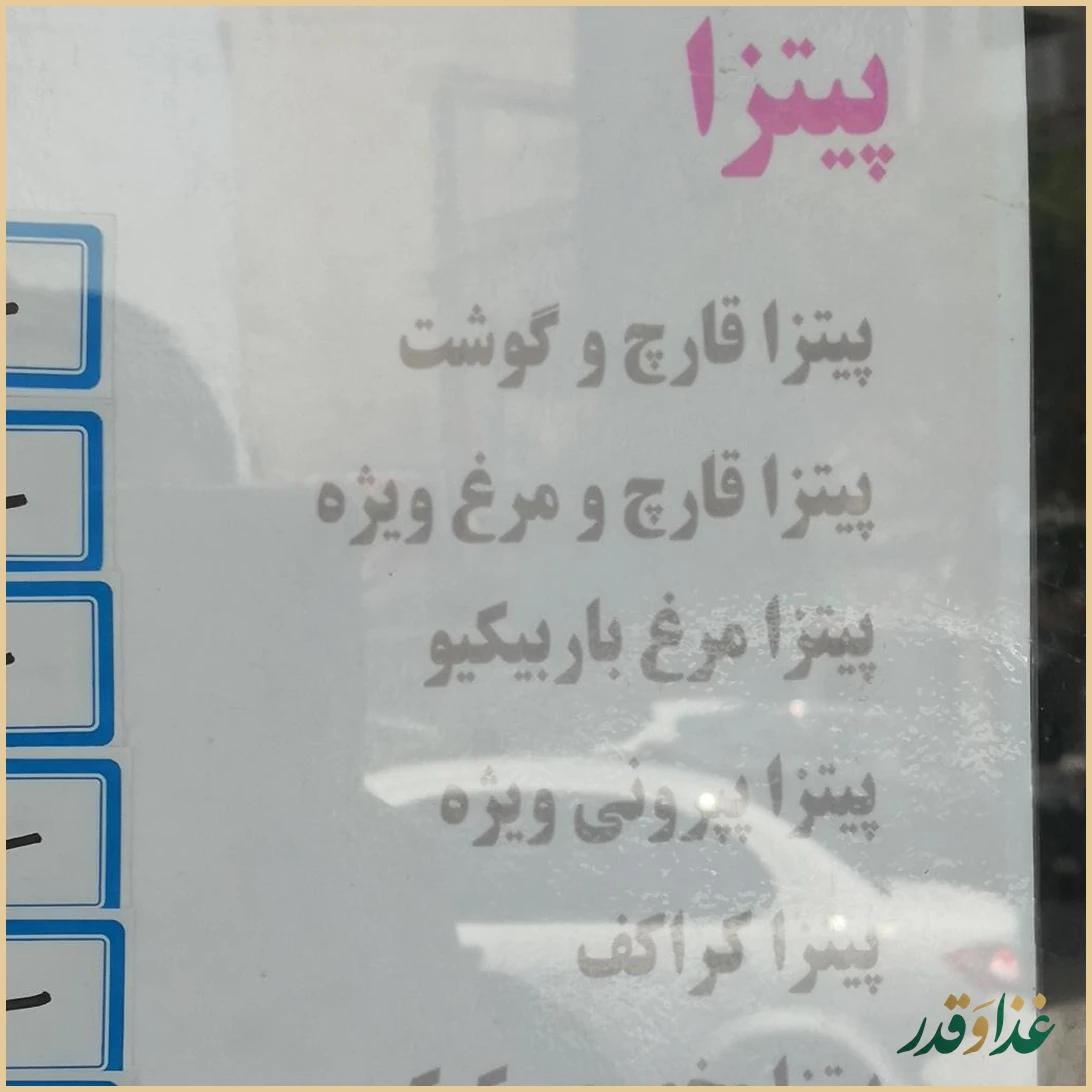 پیتزا
پیتزا قارچ و گوشت
پیتزا قارچ و مرغ ویژه
پیتزا مرغ باربیکیو
پیتزا پپرونی ویژه
پیتزا کراکف
پیتزا
غذا و قدر